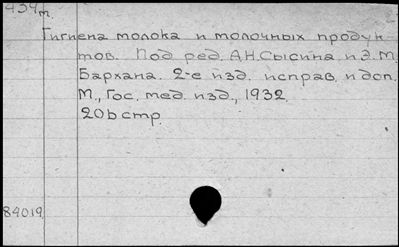 434т.
Гигиена молока и молочных продук
тов. Под ред. А.Н.Сысина и З.М.
Бархана. 2-е изд. исправ. и доп.
М., Гос. мед. изд., 1932.
206 стр.
84019